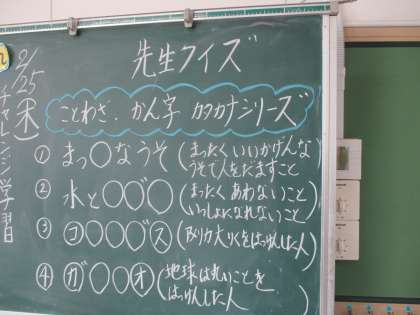 2/25
㊍
チャレンジ学習
先生クイズ
ことわざ、かん字 カタカナシリーズ
① まっ○なうそ(まったくいいかげんなうそで人をだますこと
② 水と○゛○゛○(まったくあわないこといっしょになれないこと)
③ コ○○○゛ス(アメリカ大りくをはっけんした人)
④ ガ○○オ(地球は丸いことをはっけんした人